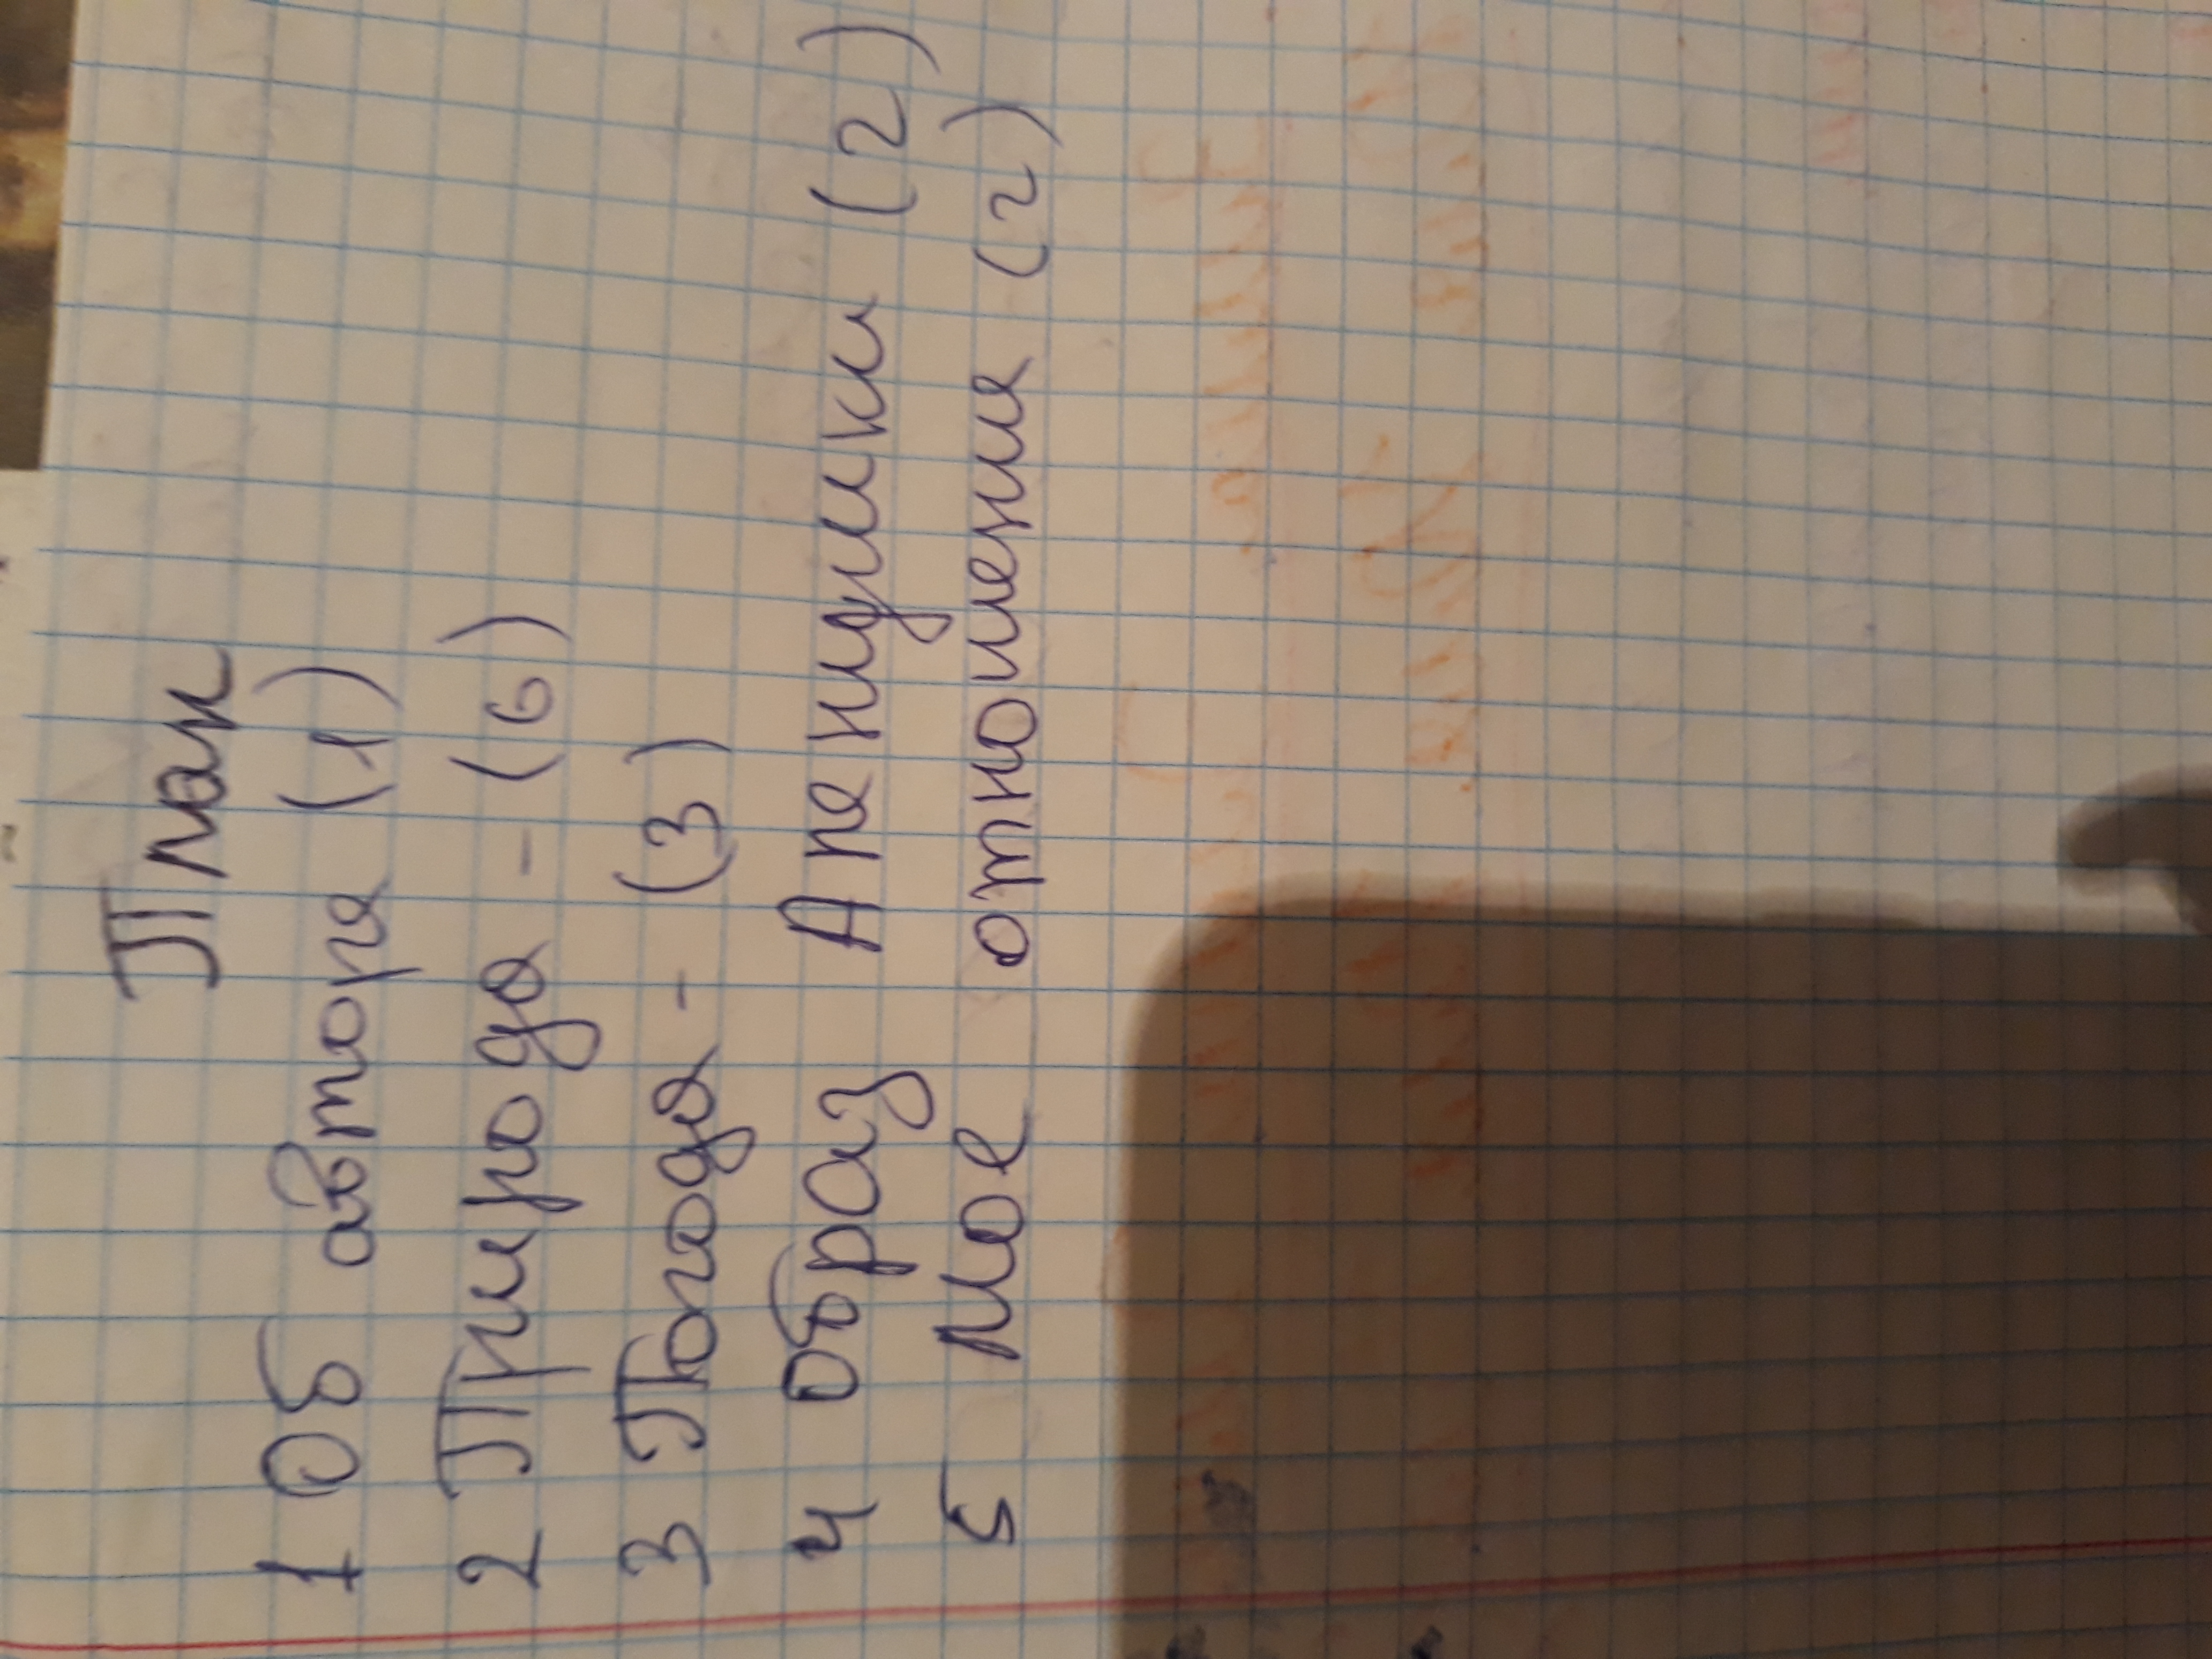 План
1 Об автора (1)
2 Природа - (6)
3 Погода - (3)
4 Образ Аленушки (2)
5 Мое отношение (2)